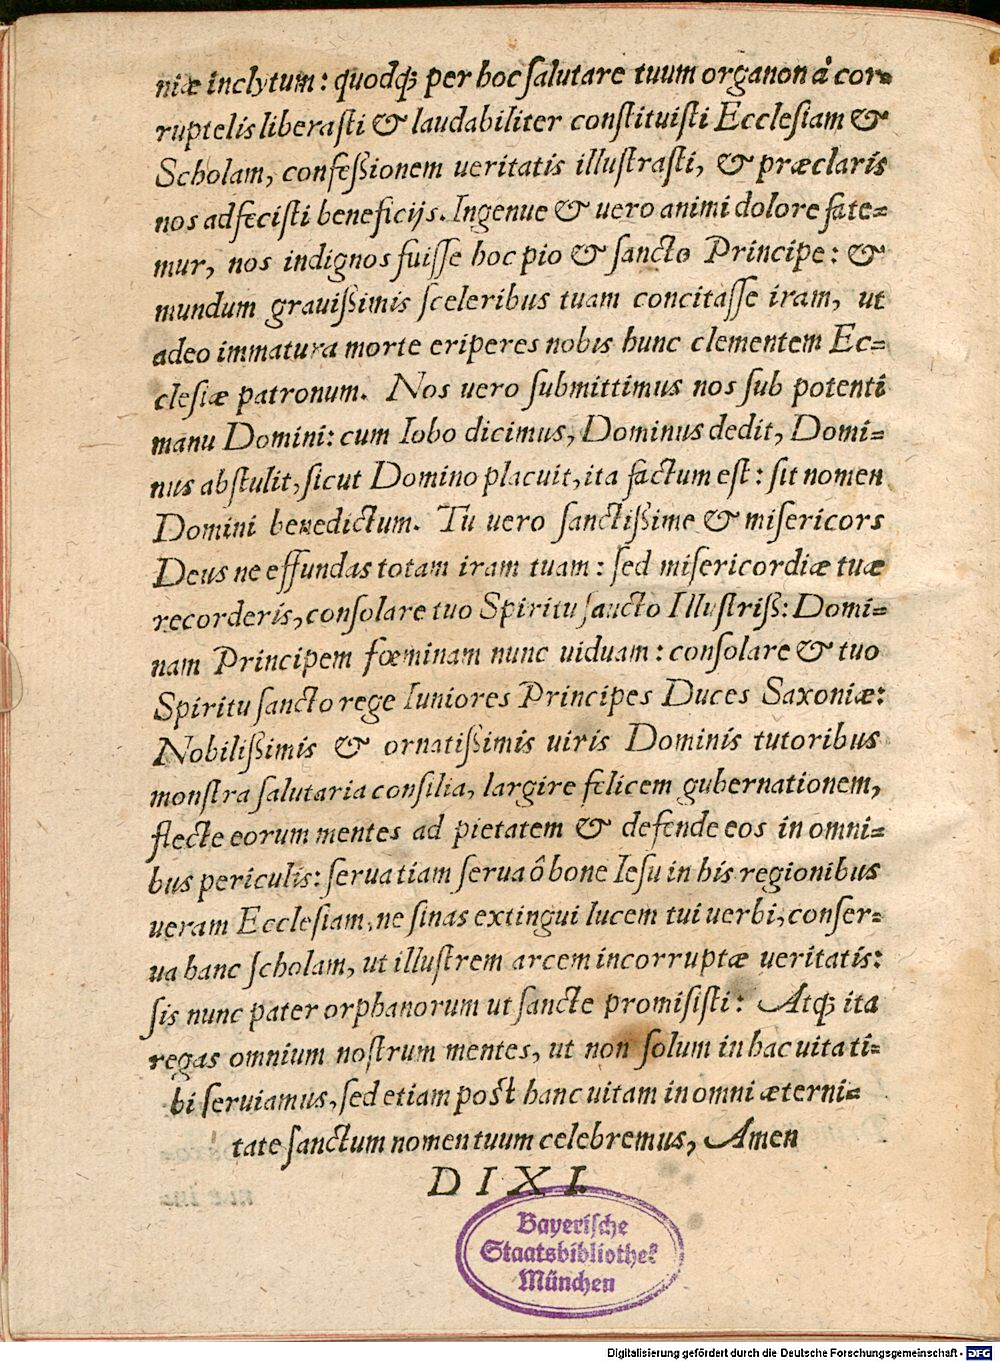 niæ inclytum: quodq́; per hoc salutare tuum organon à cor=
ruptelis liberasti & laudabiliter constituisti Ecclesiam &
Scholam, confeßionem ueritatis illustrasti, & præclaris
nos adfecisti beneficijs. Ingenue & uero animi dolore fate=
mur, nos indignos fuisse hoc pio & sancto Principe: &
mundum grauißimis sceleribus tuam concitasse iram, ut
adeo immatura morte eriperes nobis hunc clementem Ec=
clesiæ patronum. Nos uero submittimus nos sub potenti
manu Domini: cum Iobo dicimus, Dominus dedit, Domi=
nus abstulit, sicut Domino placuit, ita factum est: sit nomen
Domini benedictum. Tu uero sanctißime & misericors
Deus ne effundas totam iram tuam: sed misericordiæ tuæ
recorderis, consolare tuo Spiritu sancto Illustriß: Domi=
nam Principem fœminam nunc uiduam: consolare & tuo
Spiritu sancto rege Iuniores Principes Duces Saxoniæ:
Nobilißimis & ornatißimis uiris Dominis tutoribus
monstra salutaria consilia, largire felicem gubernationem,
flecte eorum mentes ad pietatem & defende eos in omni=
bus periculis: serua tiam serua ô bone Iesu in his regionibus
ueram Ecclesiam, ne sinas extingui lucem tui uerbi, conser=
ua hanc scholam, ut illustrem arcem incorruptæ ueritatis:
sis nunc pater orphanorum ut sancte promisisti: Atq́; ita
regas omnium nostrum mentes, ut non solum in hac uita ti=
bi seruiamus, sed etiam post hanc uitam in omni æterni=
tate sanctum nomen tuum celebremus, Amen
DIXI.
Bayerische
Staatsbibliothek
München
Digitalisierung gefördert durch die Deutsche Forschungsgemeinschaft - DFG